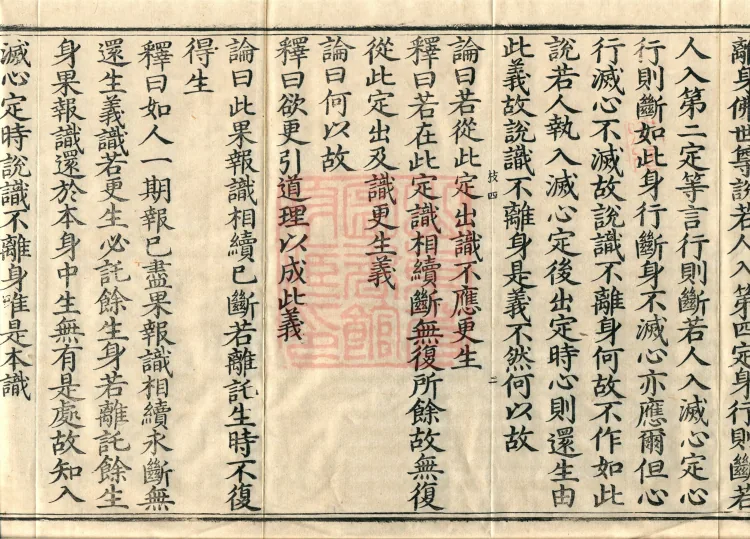 離身佛世尊說若人入第四定身行則斷若
人入第二定等言行則斷若人入滅心定心
行則斷如此身行斷身不滅心亦應爾但心
行滅心不滅故說識不離身何故不作如此
說若人執入滅心定後出定時心則還生由
此義故說識不離身是義不然何以故
技四
二
論曰若從此定出識不應更生
釋曰若在此定識相續斷無復所餘故無復
從此定出及識更生義
論曰何以故
釋曰欲更引道理以成此義
論曰此果報識相續已斷若離託生時不復
得生
釋曰如人一期報已盡果報識相續永斷無
還生義識若更生必託餘生身若離託餘生
身果報識還於本身中生無有是處故知入
滅心定時說識不離身唯是本識